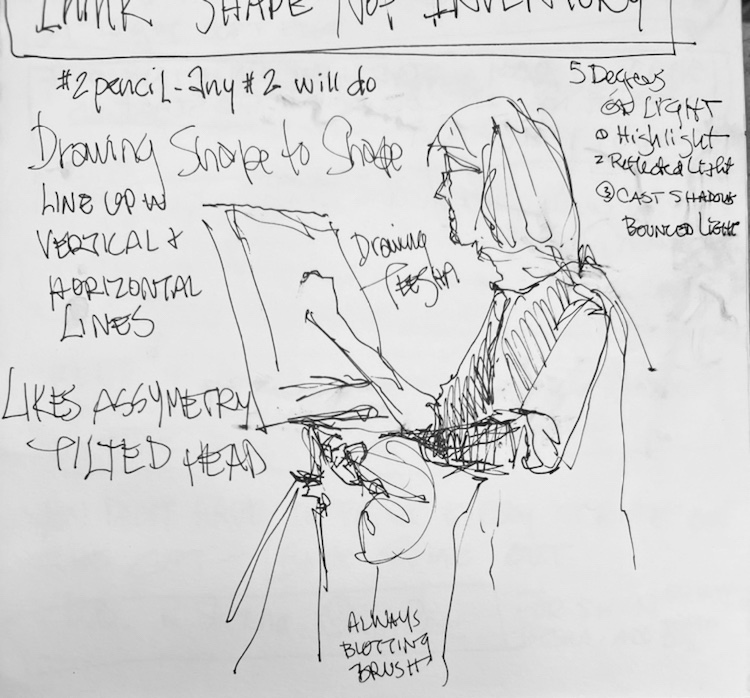 THINK SHAPE NOT INVENTORY
#2 pencil - Any #2 will do
Drawing Shape to Shape
LINE UP W
VERTICAL &
HORIZONTAL
LINES
LIKES ASSYMETRY
TILTED HEAD
Drawing
5 Degrees
OF LIGHT
① Highlight
2 Reflected Light
③ CAST SHADOW
BOUNCED LIGHT
ALWAYS
BLOTTING
BRUSH